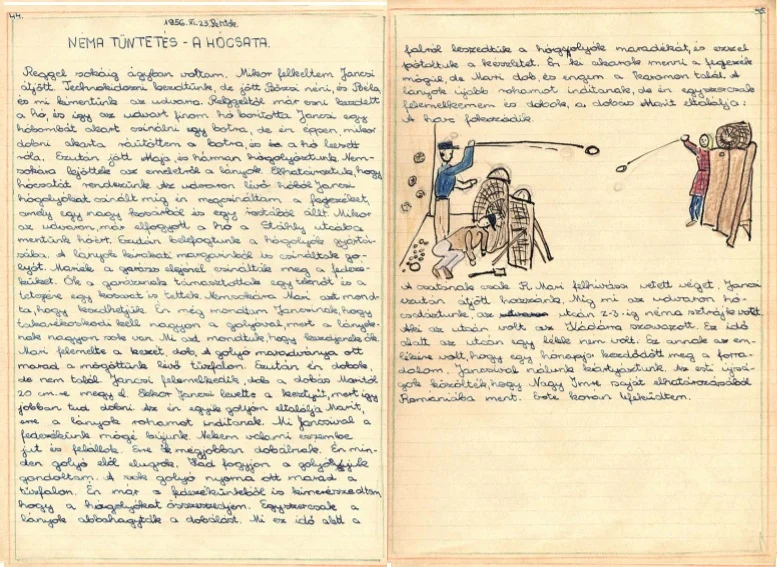 44.
1956. XI. 23. Péntek.
NÉMA TÜNTETÉS - A HÓCSATA.
Reggel sokáig ágyban voltam. Mikor felkeltem Jancsi
átjött. Technokidozni kezdtünk, de jött Rózsi néni, és Béla,
és mi kimentünk az udvarra. Reggeltől már esni kezdett
a hó, és így az udvart finom hó borította. Jancsi egy
hóbombát akart csinálni egy botra, de én éppen, mikor
dobni akarta ráütöttem a botra, és a hó leesett
róla. Ezután jött Maja, és hárman hógolyóztunk. Nem-
sokára lejöttek az emeletről a lányok. Elhatároztuk, hogy
hócsatát rendezünk. Az udvaron lévő hóból Jancsi
hógolyókat csinált míg én megcsináltam a fegezéket,
amely egy nagy kosárból és egy rostából állt. Mikor
az udvaron már elfogyott a hó a Stáhly utcába
mentünk hóért. Ezután belefogtunk a hógolyók gyártá-
sába. A lányok kirakati margarinból is csináltak go-
lyót. Mariék a garázs elejénél csinálták meg a fedezé-
küket. Ők a garázsnak támasztottak egy teknőt és a
tetejére egy kosarat is tettek. Nemsokára Mari azt mond-
ta, hogy kezdhetjük. Én még mondtam Jancsinak, hogy
takarékoskodni kell nagyon a golyóval, mert a lányok-
nak nagyon sok van. Mi azt mondtuk, hogy kezdjenek ők.
Mari felemelte a kezét, dob. A golyó maradványa ott
marad a mögöttünk lévő tűzfalon. Ezután én dobok,
de nem talál. Jancsi felemelkedik, dob a dobás Maritól
20 cm-re megy el. Ekkor Jancsi levette a kesztyűt, mert így
jobban tud dobni. Az én egyik golyóm eltalálja Marit,
erre a lányok rohamot indítanak. Mi Jancsival a
fedezékünk mögé bújunk. Nekem valami eszembe
jut és felállok. Erre mégjobban dobálnak. Én min-
den golyó elől elugrok. Had fogyjon a golyójuk
gondoltam. A sok golyó nyoma ott marad a
tűzfalon. Én már a fedezékünkből is kimerészkedtem,
hogy a hógolyókat összeszedjem. Egyszercsak a
lányok abbahagyták a dobálást. Mi ez idő alatt a
45.
falról leszedtük a hógolyók maradékát, és ezzel
pótoltuk a készletet. Én ki akarok menni a fegezék
mögül, de Mari dob, és engem a karomon talál. A
lányok újabb rohamot indítanak, de én egyszercsak
felemelkedem és dobok, a dobás Marit eltalálja.
A harc fokozódik.
A csatának csak R. Mari felhívása vetett véget. Jancsi
ezután átjött hozzánk. Míg mi az udvaron hó-
csatáztunk, az utcán 2-3-ig néma sztrájk volt.
Aki az utcán volt az Kádárra szavazott. Ez idő
alatt az utcán egy lélek nem volt. Ez annak az em-
lékére volt, hogy egy hónapja kezdődött meg a forra-
dalom. Jancsival nálunk kártyáztunk. Az esti újsá-
gok közölték, hogy Nagy Imre saját elhatározásából
Romániába ment. Este korán lefeküdtem.